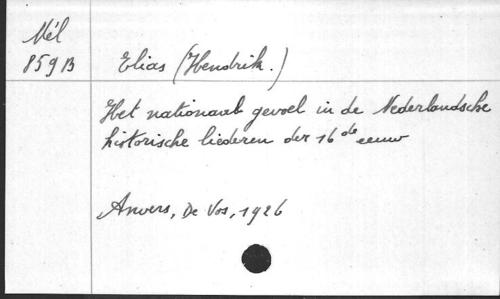 Mél
859 B
Elias (Hendrik.)
Het nationaal gevoel in de Nederlandsche
historische liederen der 16de eeuw
Anvers, De Vos, 1926